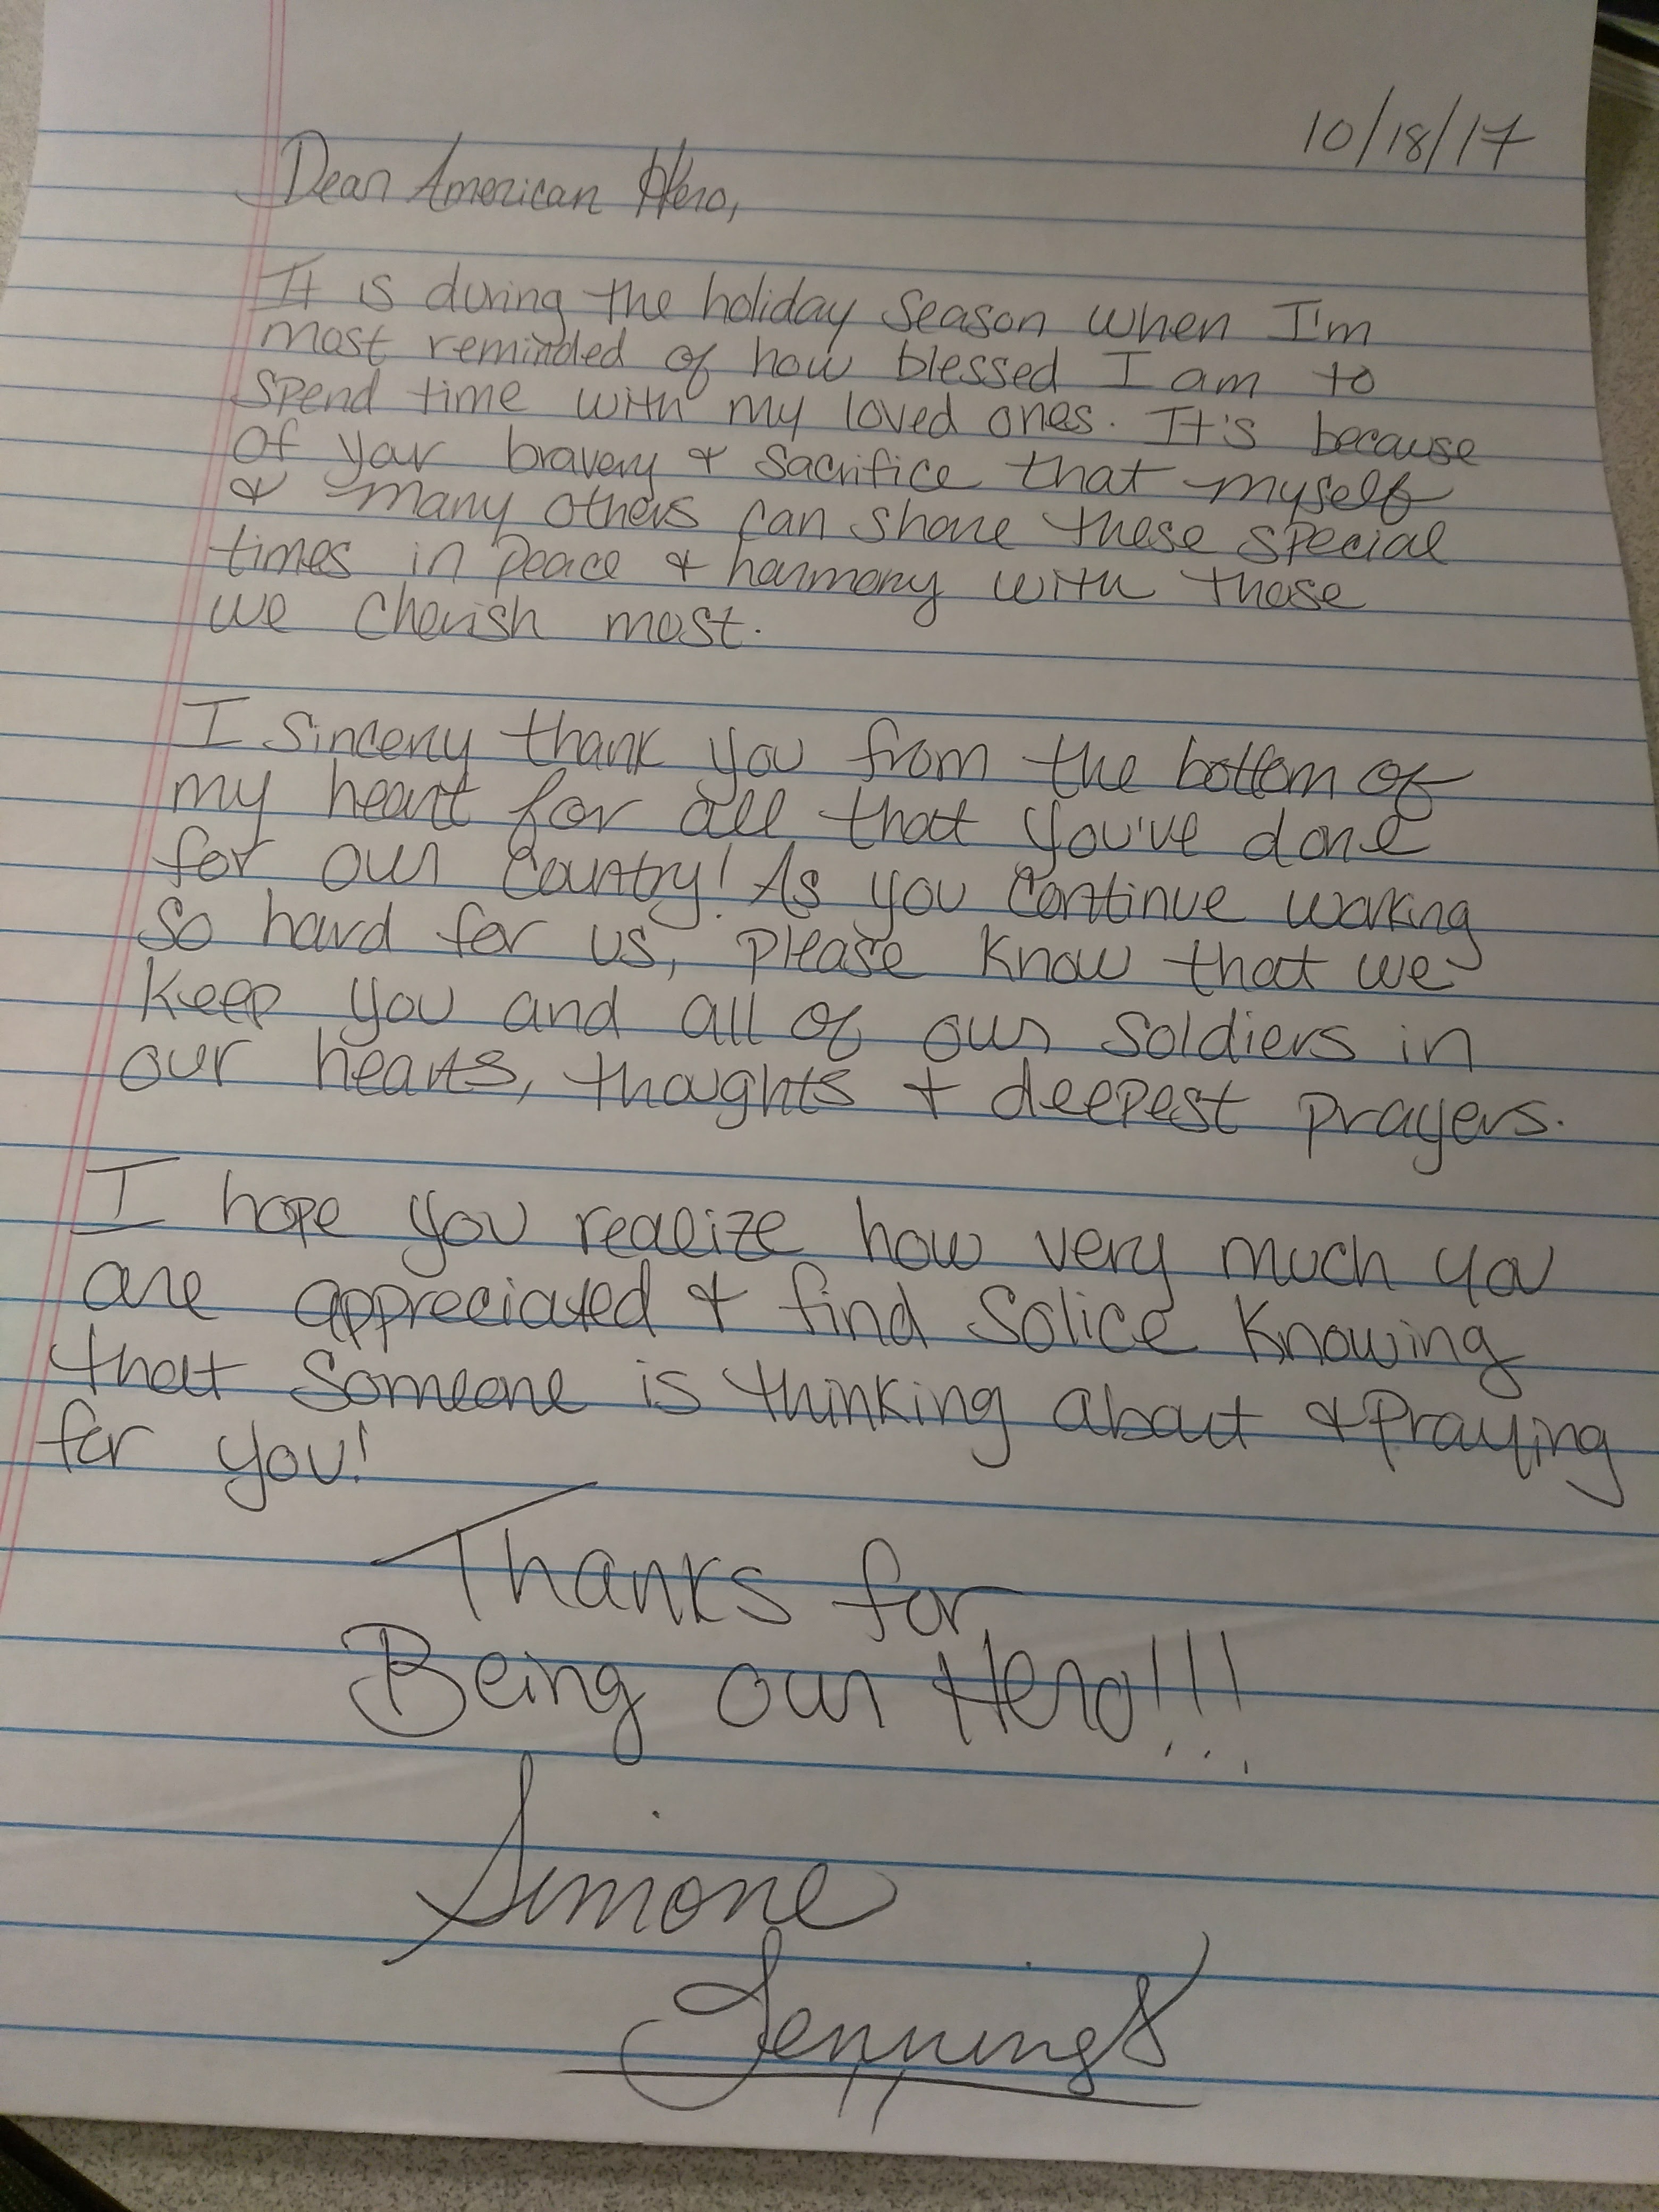 10/18/17
Dear American Hero,
It is during the holiday season when I'm
most reminded of how blessed I am to
spend time with my loved ones. It's because
of your bravery & sacrifice that myself
& many others can share these special
times in peace & harmony with those
we cherish most.
I sincerly thank you from the bottom of
my heart for all that you've done
for our country! As you continue working
so hard for us, please know that we
keep you and all of our soldiers in
our hearts, thoughts + deepest prayers.
I hope you realize how very much you
are appreciated & find solice knowing
that someone is thinking about & praying
for you!
Thanks for
Being our Hero!!!
Simone
Jennings